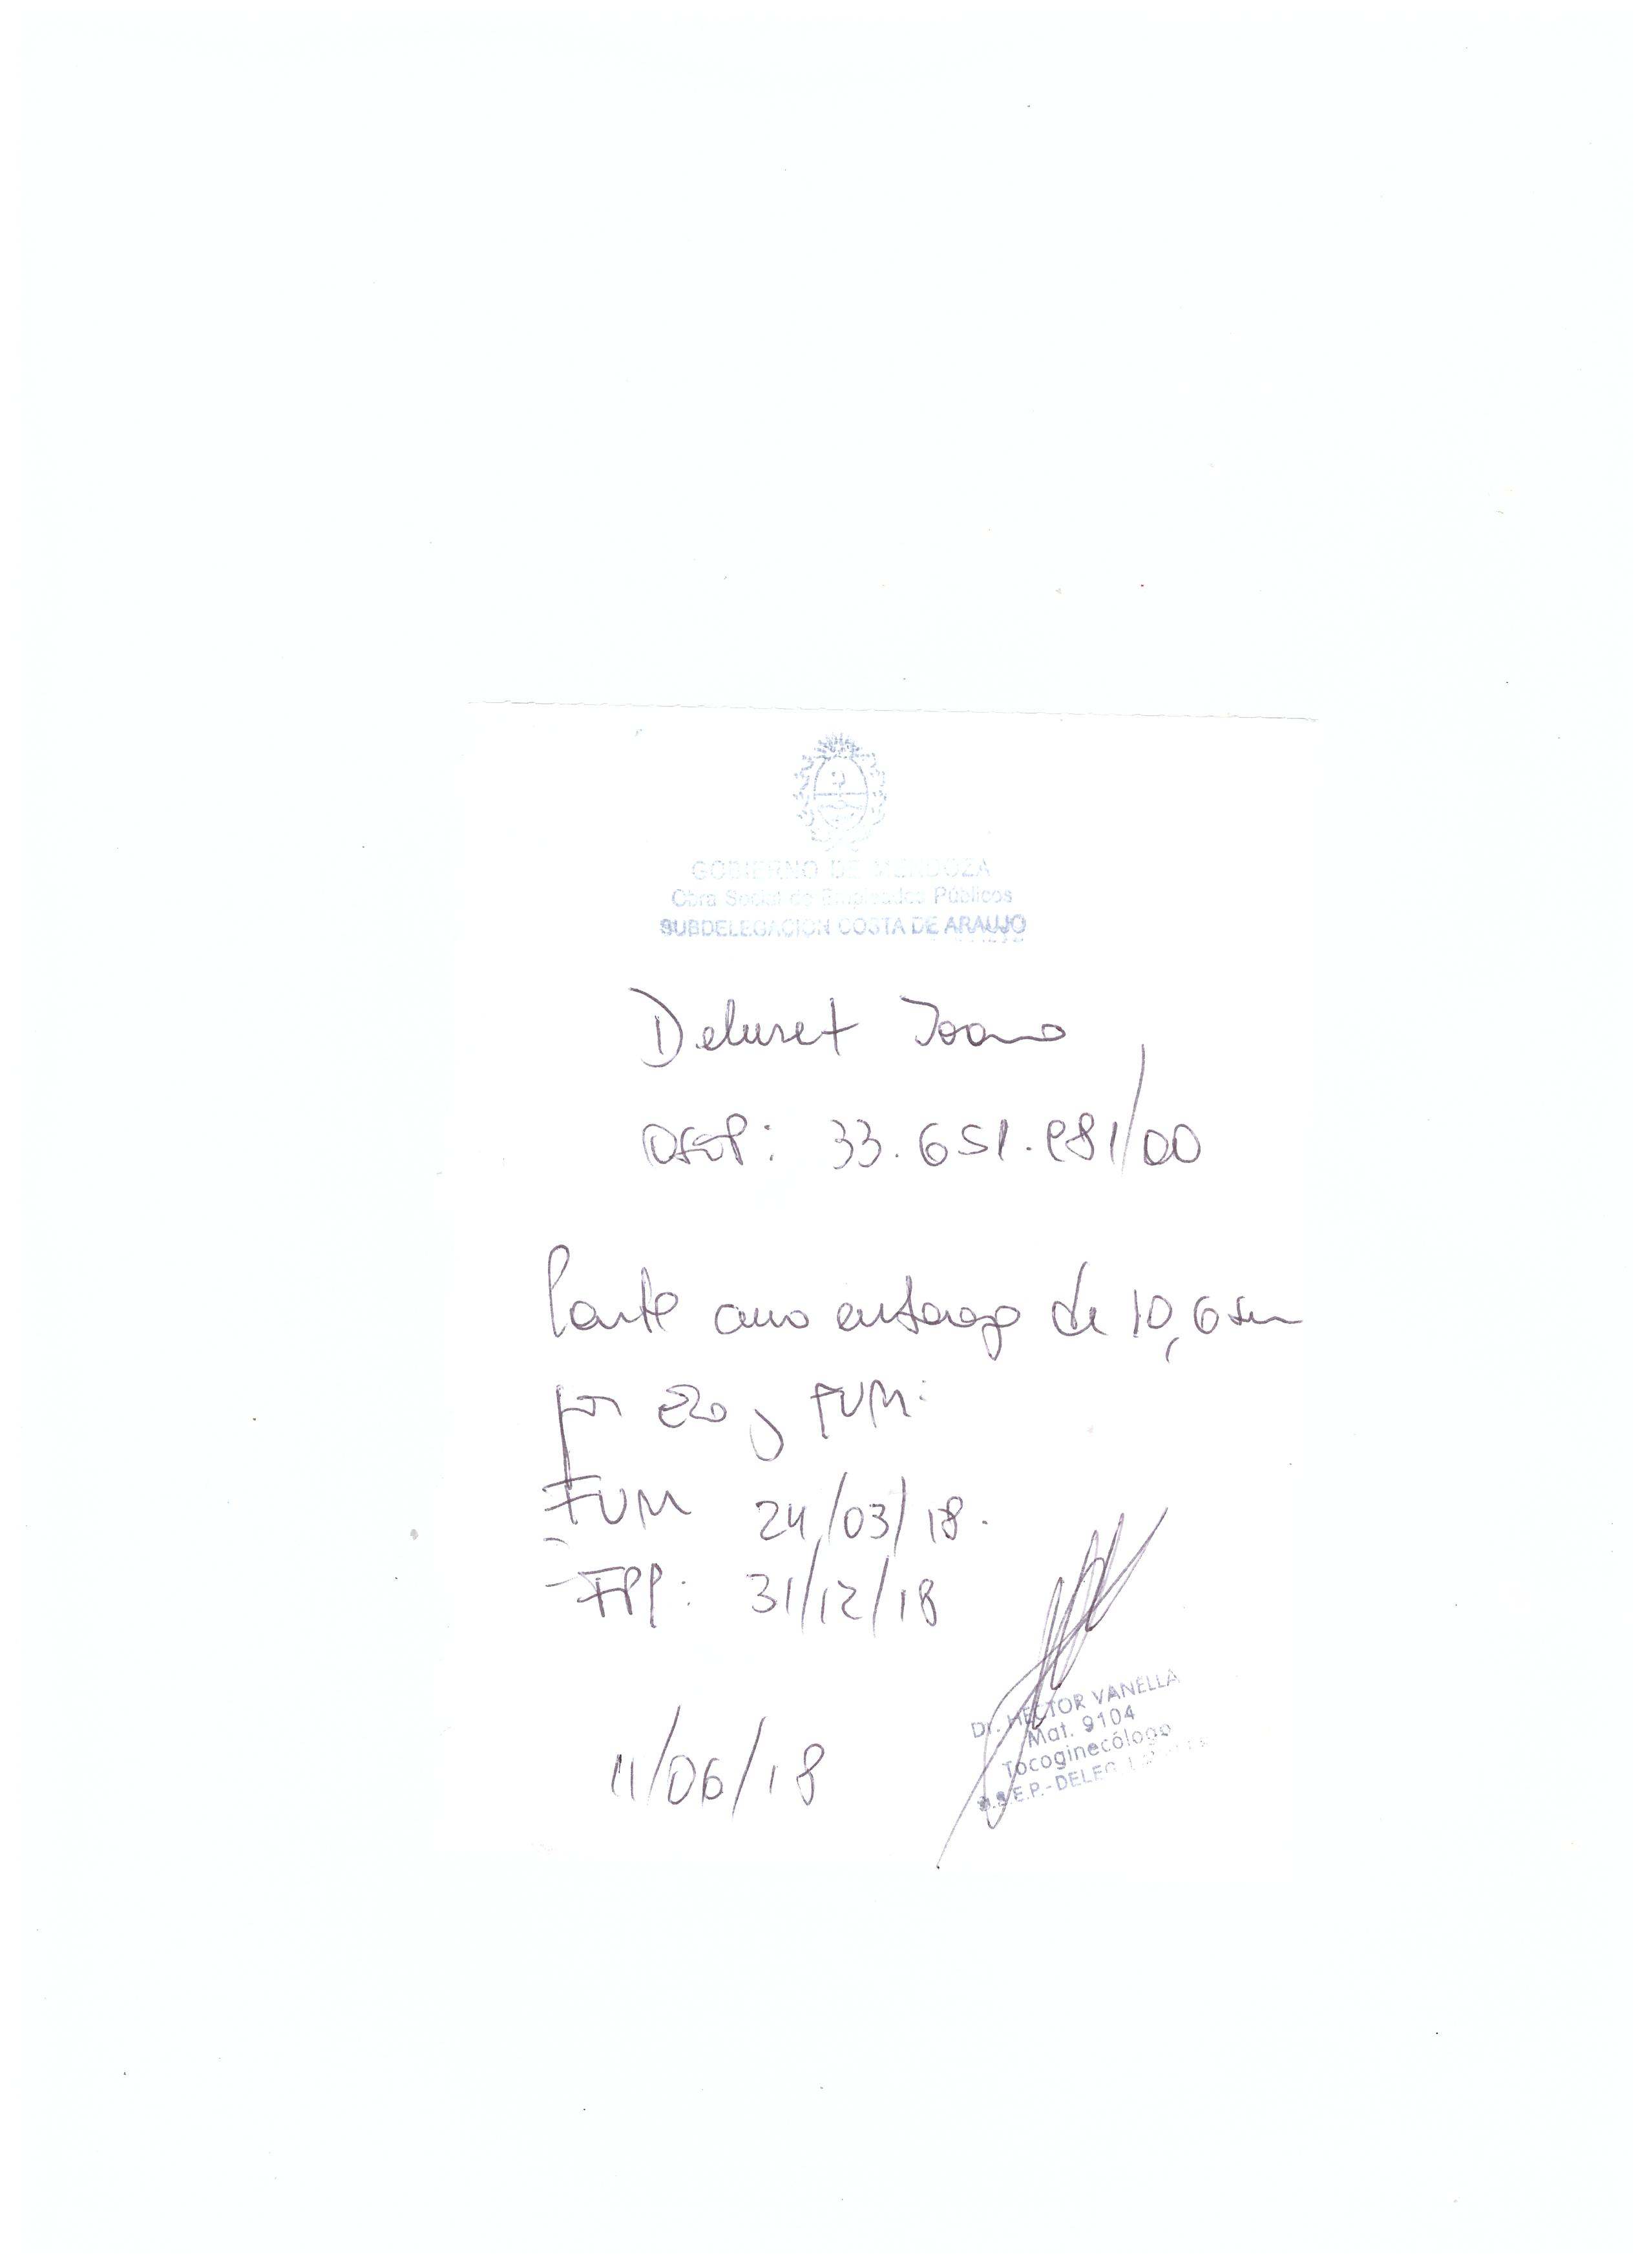 GOBIERNO DE MENDOZA
Obra Social de Empleados Públicos
SUBDELEGACION COSTA DE ARAUJO
OSEP: 33.651.981/00
embarazo de 10,6 sem
por Eco y FUM:
FUM 24/03/18.
FPP: 31/12/18
11/06/18
Dr. HECTOR VANELLA
Mat. 9104
Tocoginecólogo
O.S.E.P.-DELEG.